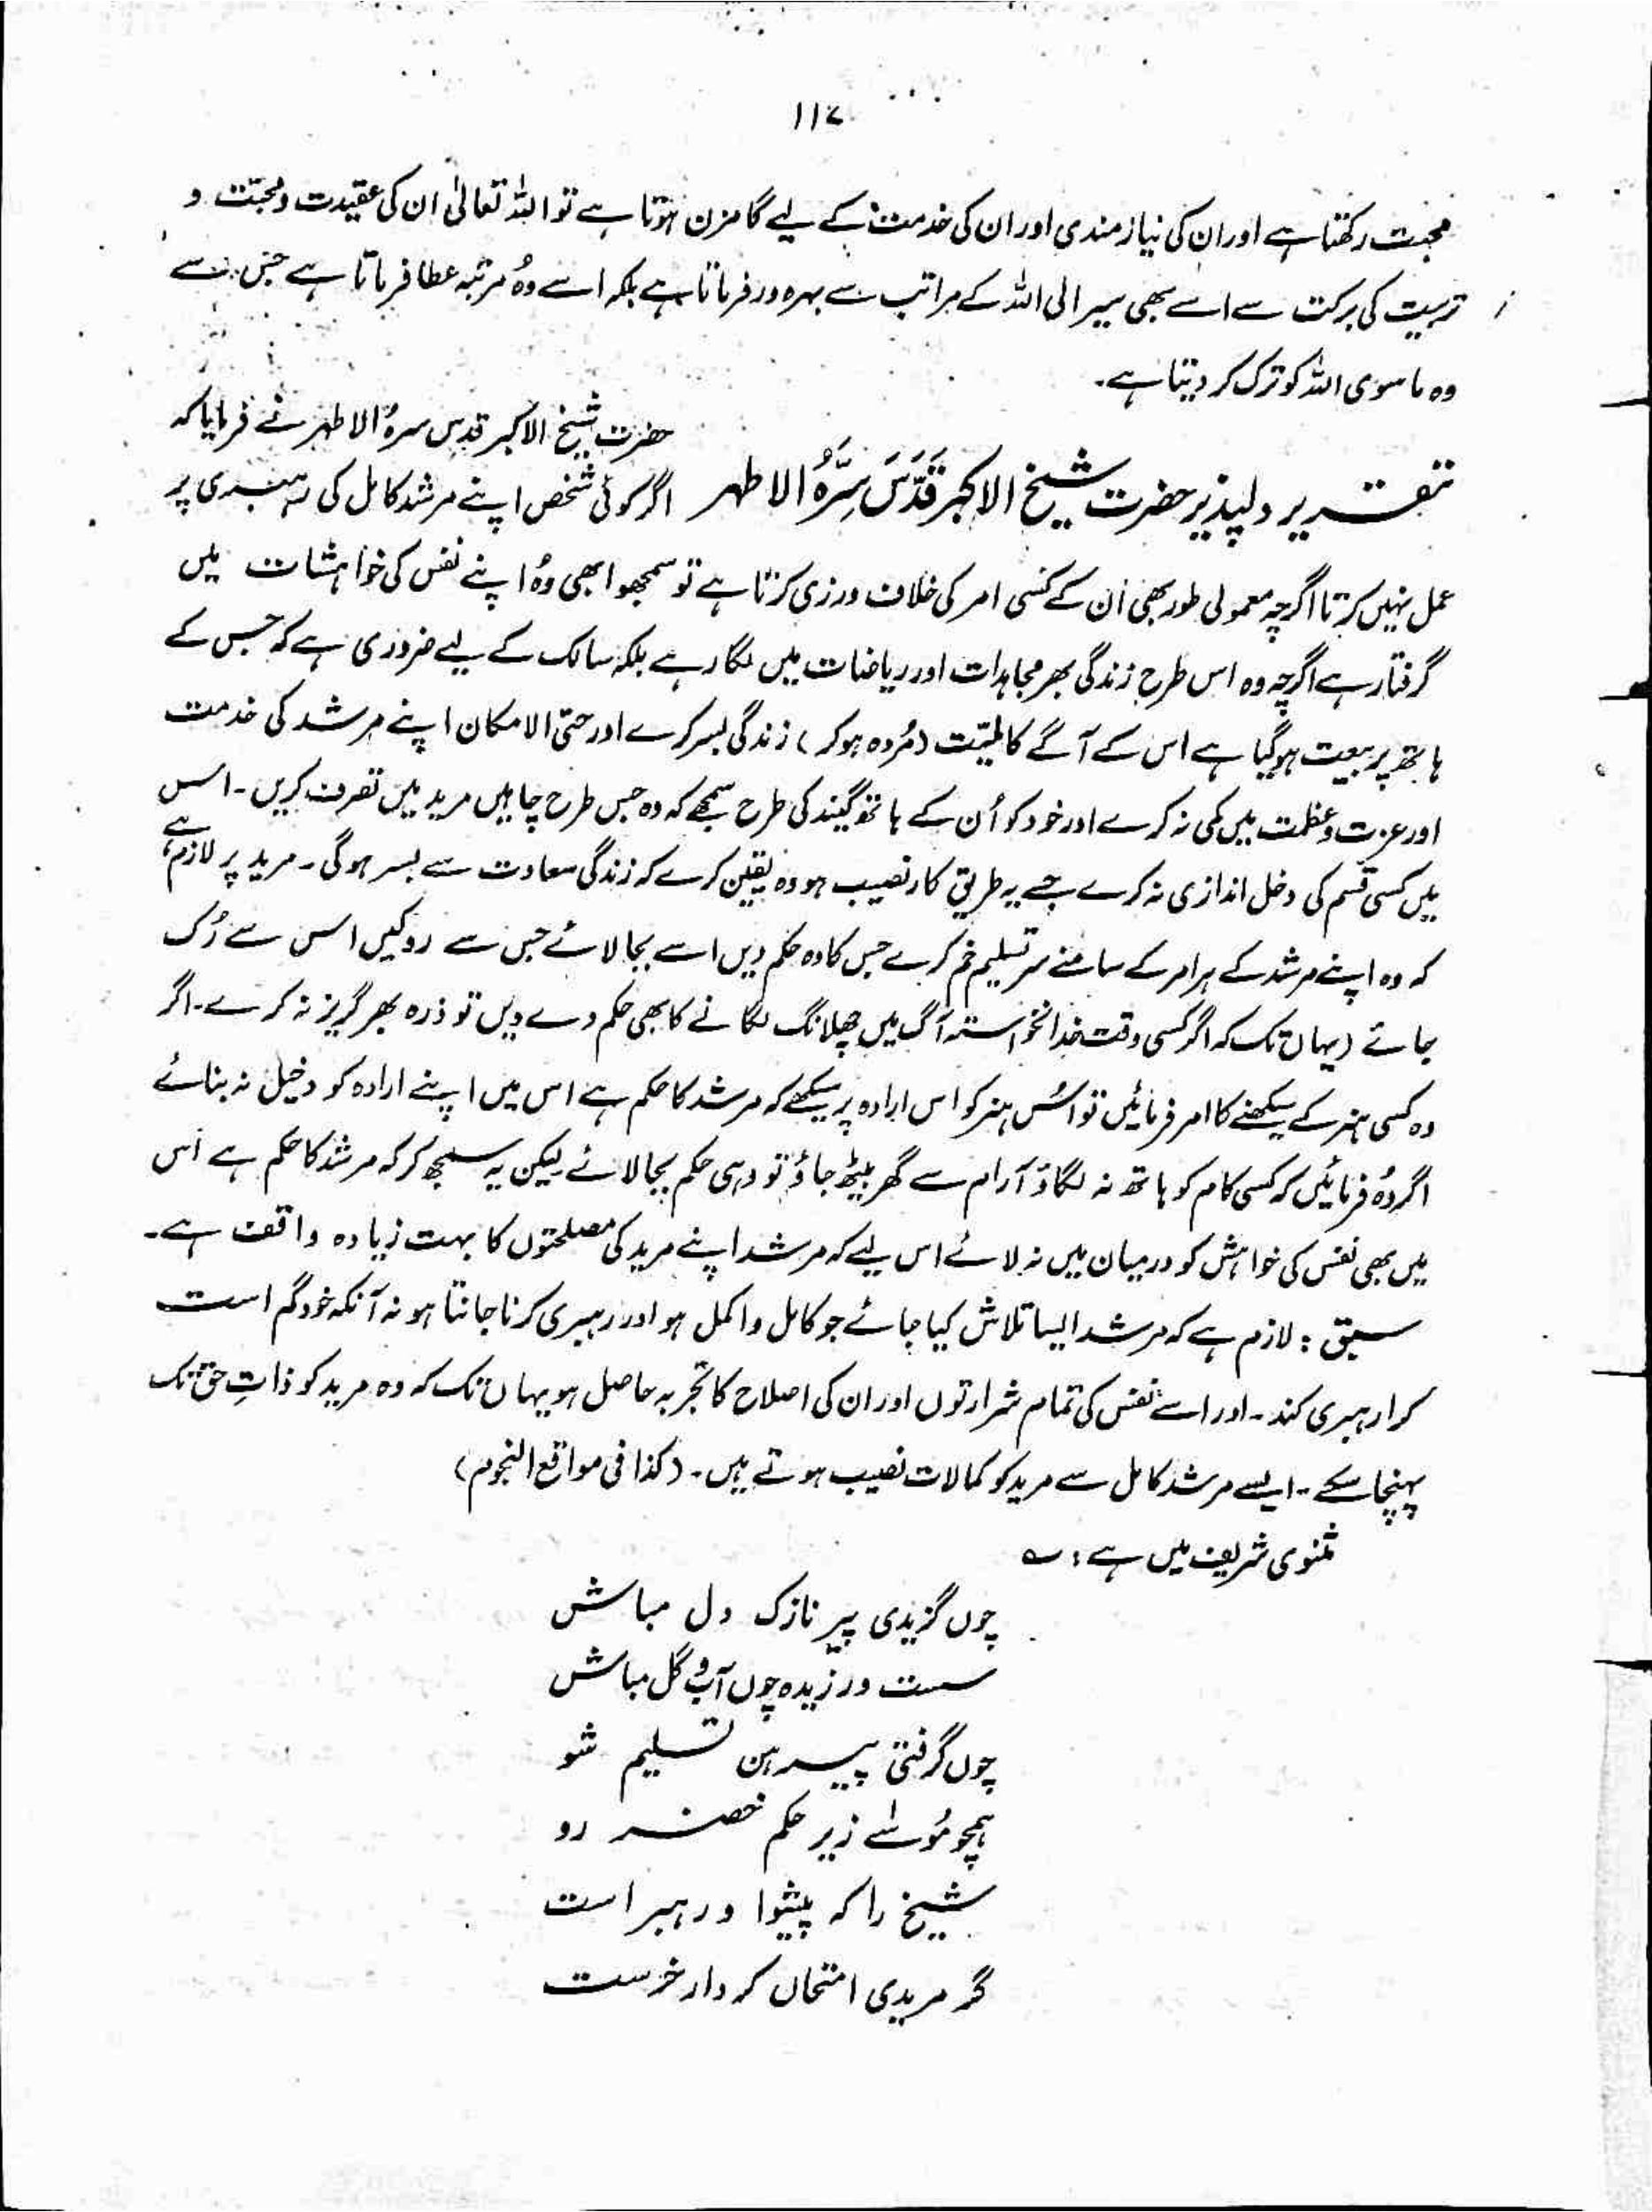 ۱۱۷
محبت رکھتا ہے اور ان کی نیاز مندی اور ان کی خدمت کے لیے گامزن ہوتا ہے تو اللہ تعالیٰ ان کی عقیدت و محبّت و
تربیت کی برکت سے اسے بھی سیر الی اللہ کے مراتب سے بہرہ ور فرماتا ہے بلکہ اسے وہُ مرتبہ عطا فرماتا ہے جس سے
وہ ماسوی اللہ کو ترک کر دیتا ہے۔
حضرت شیخ الاکبر قدس سرہُ الاطہر نے فرمایا کہ
تقریر دلپذیر حضرت شیخ الاکبر قَدَّسَ سِرَّہُ الاطہر اگر کوئی شخص اپنے مرشد کامل کی رہبری پر
عمل نہیں کرتا اگرچہ معمولی طور بھی اُن کے کسی امر کی خلاف ورزی کرتا ہے تو سمجھو ابھی وہُ اپنے نفس کی خواہشات میں
گرفتار ہے اگرچہ وہ اس طرح زندگی بھر مجاہدات اور ریاضات میں لگا رہے بلکہ سالک کے لیے ضروری ہے کہ جس کے
ہاتھ پر بیعت ہو گیا ہے اس کے آگے کالمیّت (مُردہ ہو کر) زندگی بسر کرے اور حتّی الامکان اپنے مرشد کی خدمت
اور عزت و عظمت میں کمی نہ کرے اور خود کو اُن کے ہاتھ گیند کی طرح سمجھے کہ وہ جس طرح چاہیں مرید میں تصرف کریں۔ اس
میں کسی قسم کی دخل اندازی نہ کرے جسے یہ طریق کار نصیب ہو وہ یقین کرے کہ زندگی سعادت سے بسر ہوگی۔ مرید پر لازم ہے
کہ وہ اپنے مرشد کے ہر امر کے سامنے سر تسلیم خم کرے جس کا وہ حکم دیں اسے بجا لائے جس سے روکیں اس سے رُک
جائے (یہاں تک کہ اگر کسی وقت خدانخواستہ آگ میں چھلانگ لگانے کا بھی حکم دے دیں تو ذرہ بھر گریز نہ کرے۔ اگر
وہ کسی ہنر کے سیکھنے کا امر فرمائیں تو اُس ہنر کو اس ارادہ پر سیکھے کہ مرشد کا حکم ہے اس میں اپنے ارادہ کو دخیل نہ بنائے
اگر وہُ فرمائیں کہ کسی کام کو ہاتھ نہ لگاؤ آرام سے گھر بیٹھ جاؤ تو وہی حکم بجا لائے لیکن یہ سمجھ کر کہ مرشد کا حکم ہے اس
میں بھی نفس کی خواہش کو درمیان میں نہ لائے اس لیے کہ مرشد اپنے مرید کی مصلحتوں کا بہت زیادہ واقف ہے۔
سبق : لازم ہے کہ مرشد ایسا تلاش کیا جائے جو کامل و اکمل ہو اور رہبری کرنا جانتا ہو نہ آنکہ خود گم است
کرا رہبری کند۔ اور اسے نفس کی تمام شرارتوں اور ان کی اصلاح کا تجربہ حاصل ہو یہاں تک کہ وہ مرید کو ذاتِ حق تک
پہنچا سکے۔ ایسے مرشد کامل سے مرید کو کمالات نصیب ہوتے ہیں۔ (کذا فی مواقع النجوم)
مثنوی شریف میں ہے : ؎
چوں گزیدی پیر نازک دل مباش
سست ورزیدہ چوں آب و گل مباش
چوں گرفتی پیر ہن تسلیم شو
ہمچو مُوسٰے زیر حکم خضر رو
شیخ را کہ پیشوا و رہبر است
گر مریدی امتحاں کرد او خرست